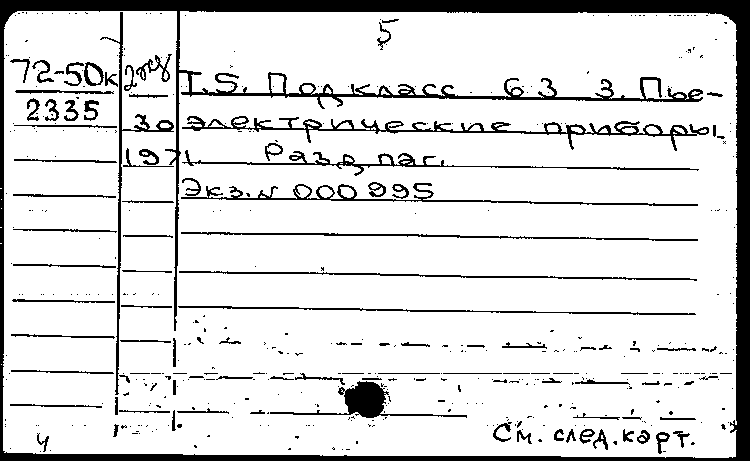 5
72-50к 2экз Т.5. Подкласс 63 3. Пье-
2335 30 электрические приборы.
1971. Разд. паг.
Экз. № 000995
См. след. карт.
4